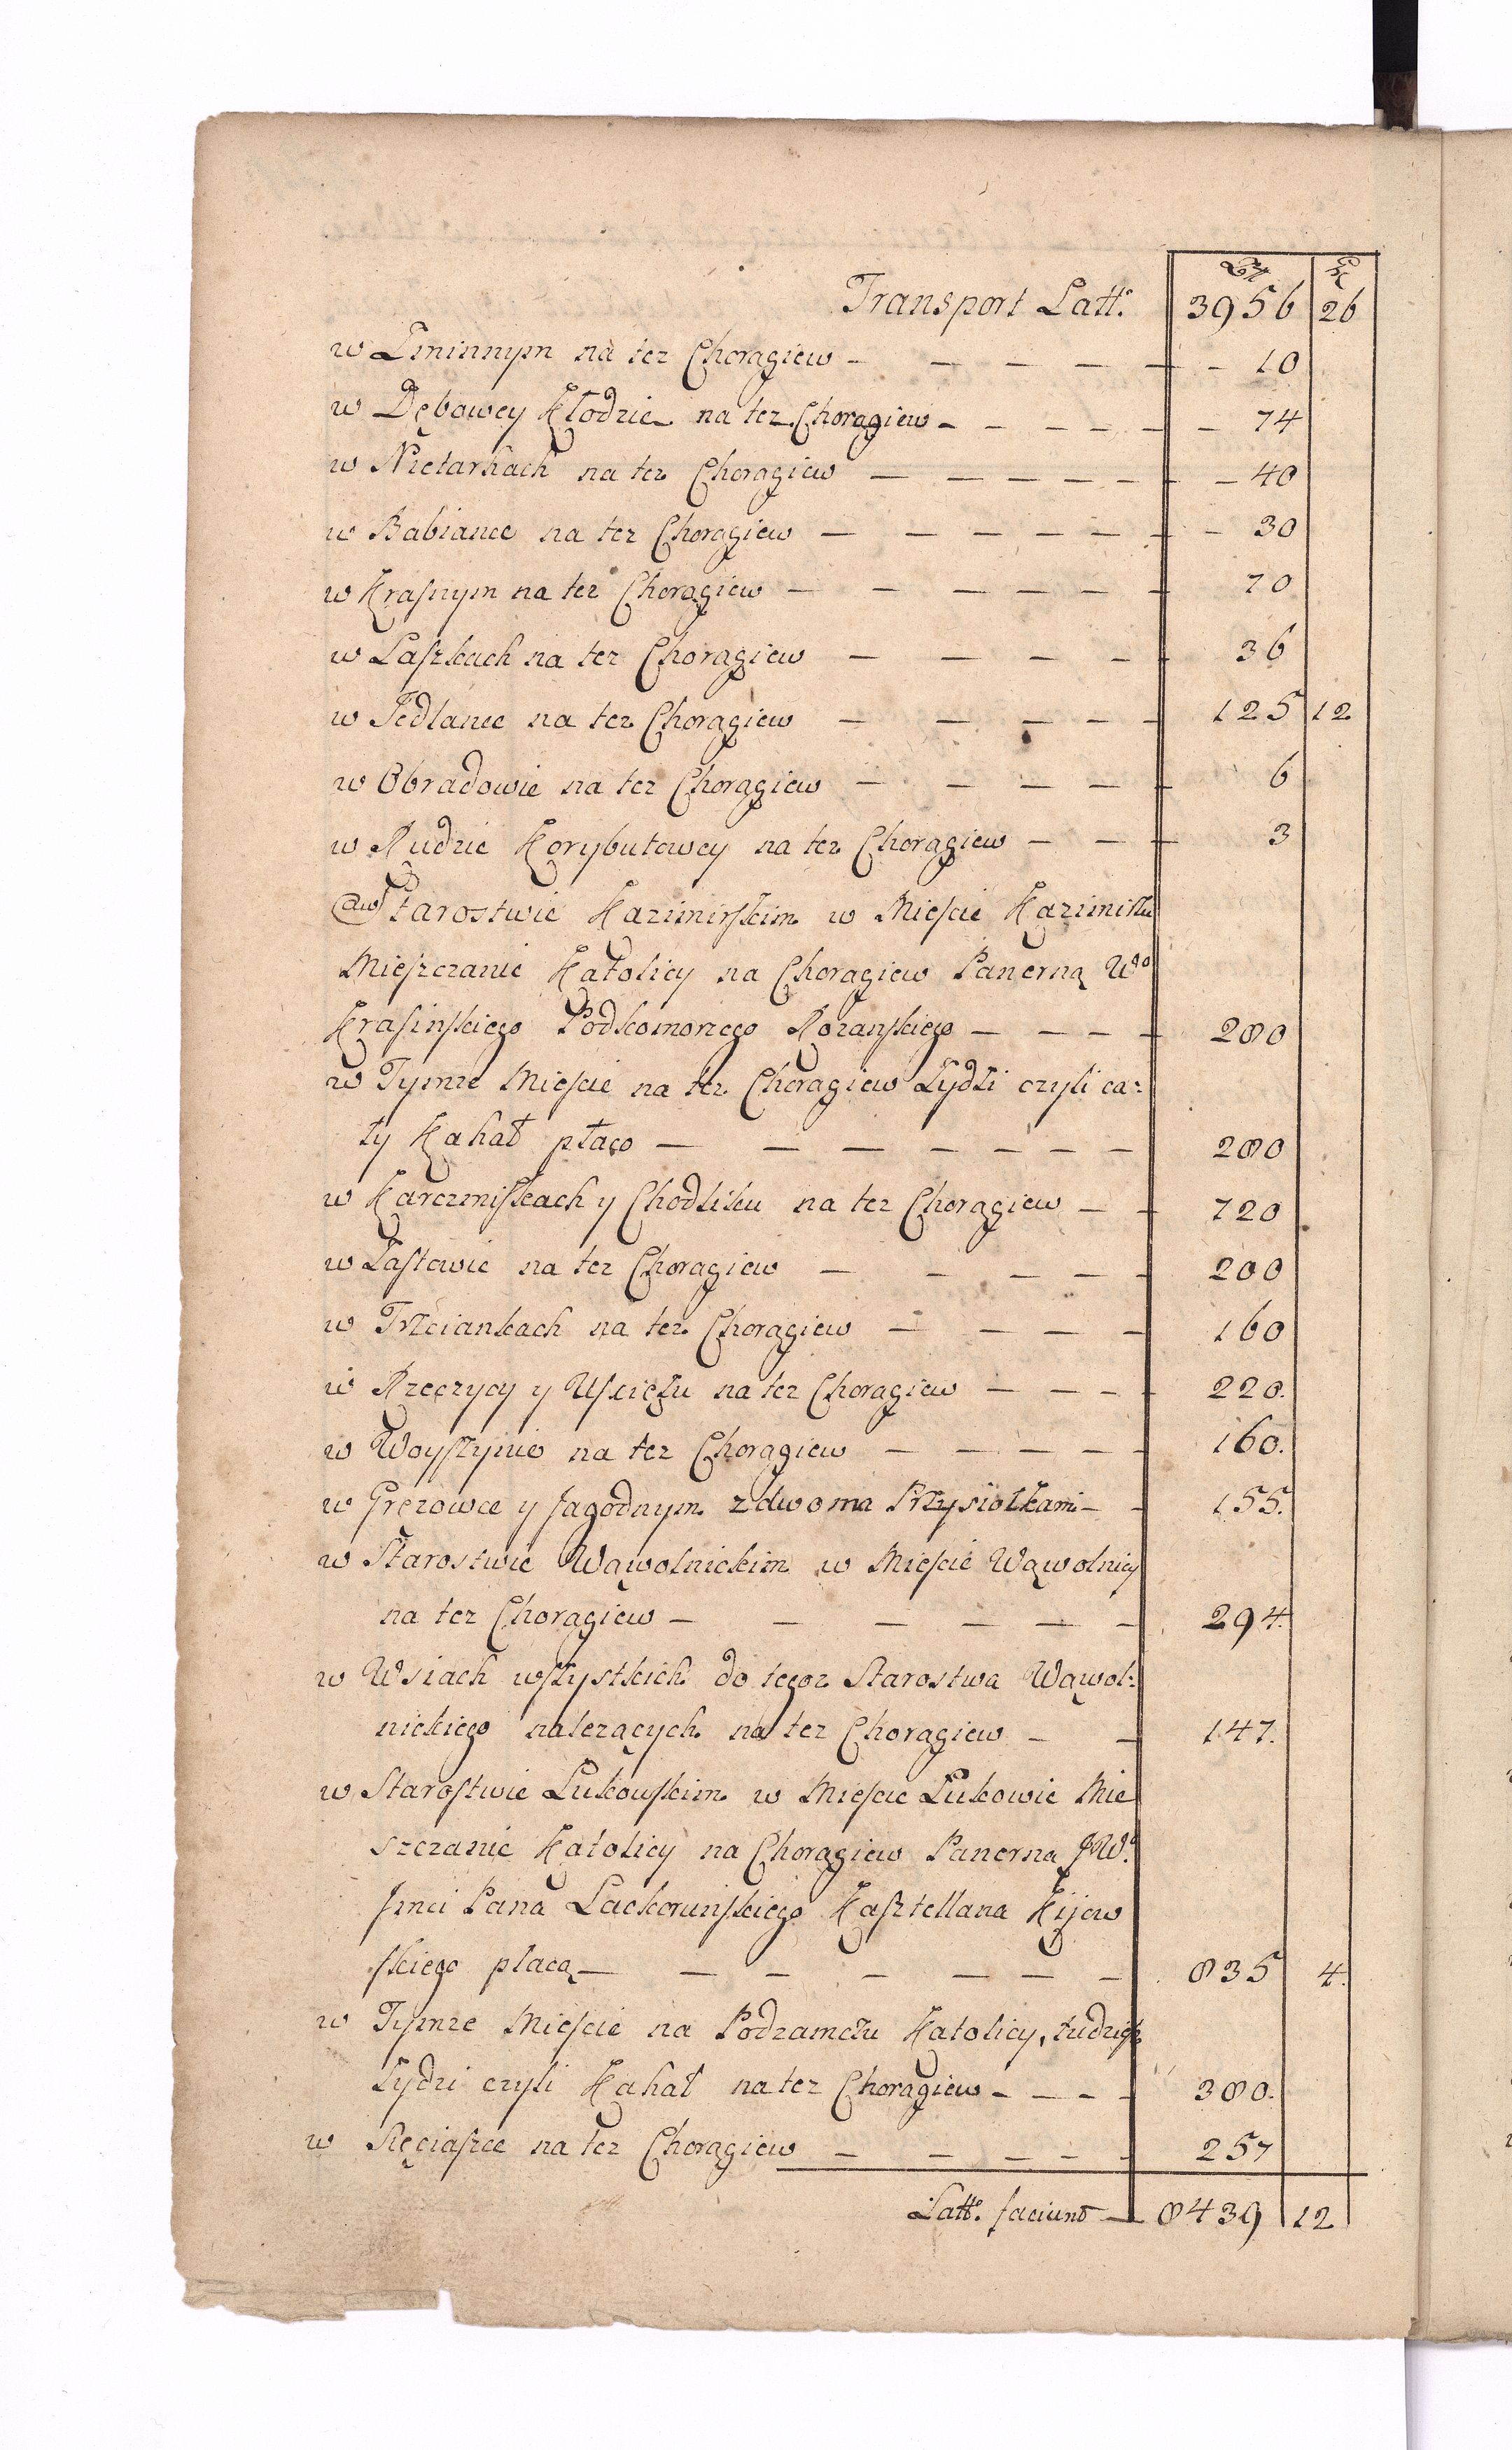 Zł gr
Transport Latt.° 3956 26
w Zminnym na tez Chorągiew — — — — — 10
w Dębowey Kłodzie na tez Chorągiew — — — — — 74
w Nietarkach na tez Chorągiew — — — — — 40
w Babiance na tez Chorągiew — — — — — — 30
w Krasnym na tez Chorągiew — — — — — — 70
w Laszkach na tez Chorągiew — — — — — 36
w Jedlance na tez Chorągiew — — — — — 125 12
w Obradowie na tez Chorągiew — — — — — 6
w Rudzie Korybutowey na tez Chorągiew — — — 3
w Starostwie Kazimirskim w Mieście Kazimirzu
Mieszczanie Katolicy na Chorągiew Pancerną W°
Krasinskiego Podkomorzego Rozanskiego — — — — 280
w Tymze Mieście na tez Chorągiew Zydzi czyli ca:
ły Kahał płaco — — — — — — — 280
w Karczmiskach y Chodliku na tez Chorągiew — — 720
w Zastowie na tez Chorągiew — — — — — 200
w Trzciankach na tez Chorągiew — — — — 160
w Rzeczycy y Uściązu na tez Chorągiew — — — — 220.
w Woyszynie na tez Chorągiew — — — — — 160.
w Grezowce y Jagodnym z dwoma Przysiołkami — — 155.
w Starostwie Wąwolnickim w Mieście Wąwolnicy
na tez Chorągiew — — — — — — 294.
w Wsiach wszystkich do tegoz Starostwa Wąwol:
nickiego nalezących na tez Chorągiew — — 147.
w Starostwie Lukowskim w Mieście Lukowie Mie
szczanie Katolicy na Chorągiew Pancerną JW.°
Jmci Pana Lackorunskiego Kasztellana Kijow
skiego płacą — — — — — — — 835 4.
w Tymze Mieście na Podzamczu Katolicy, tudziesz
Zydzi czyli Kahał na tez Chorągiew — — — — 380.
w Ręciaszce na tez Chorągiew — — — — — 257
Latt.° faciunt — 8439 12